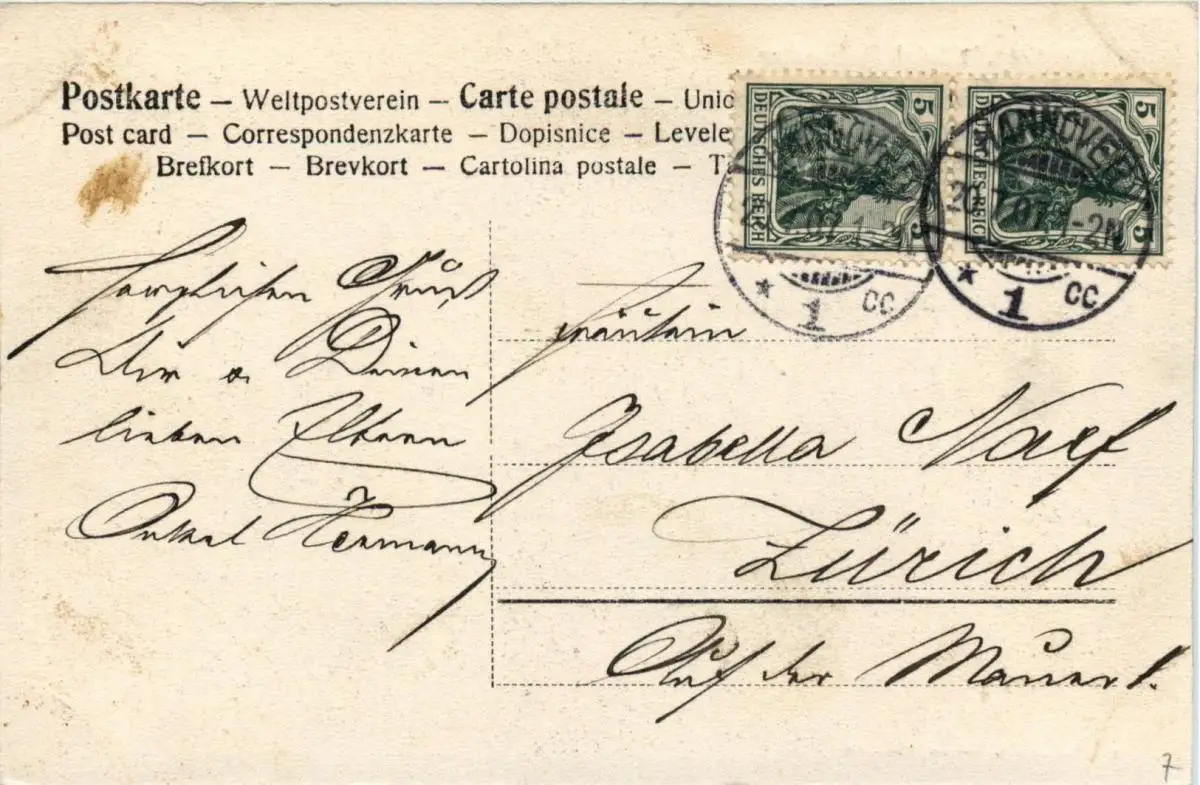 Postkarte – Weltpostverein – Carte postale – Unio
Post card – Correspondenzkarte – Dopisnice – Levele
Brefkort – Brevkort – Cartolina postale –
DEUTSCHES REICH
5
5
DEUTSCHES REICH
5
5
HANNOVER
1 CC
HANNOVER
20.7.07.1-2N
* 1 CC
Herzlichen Gruß
Dir u Deinen
lieben Eltern
Onkel Hermann
Fräulein
Isabella Naef
Zürich
Auf der Mauer 1.
7